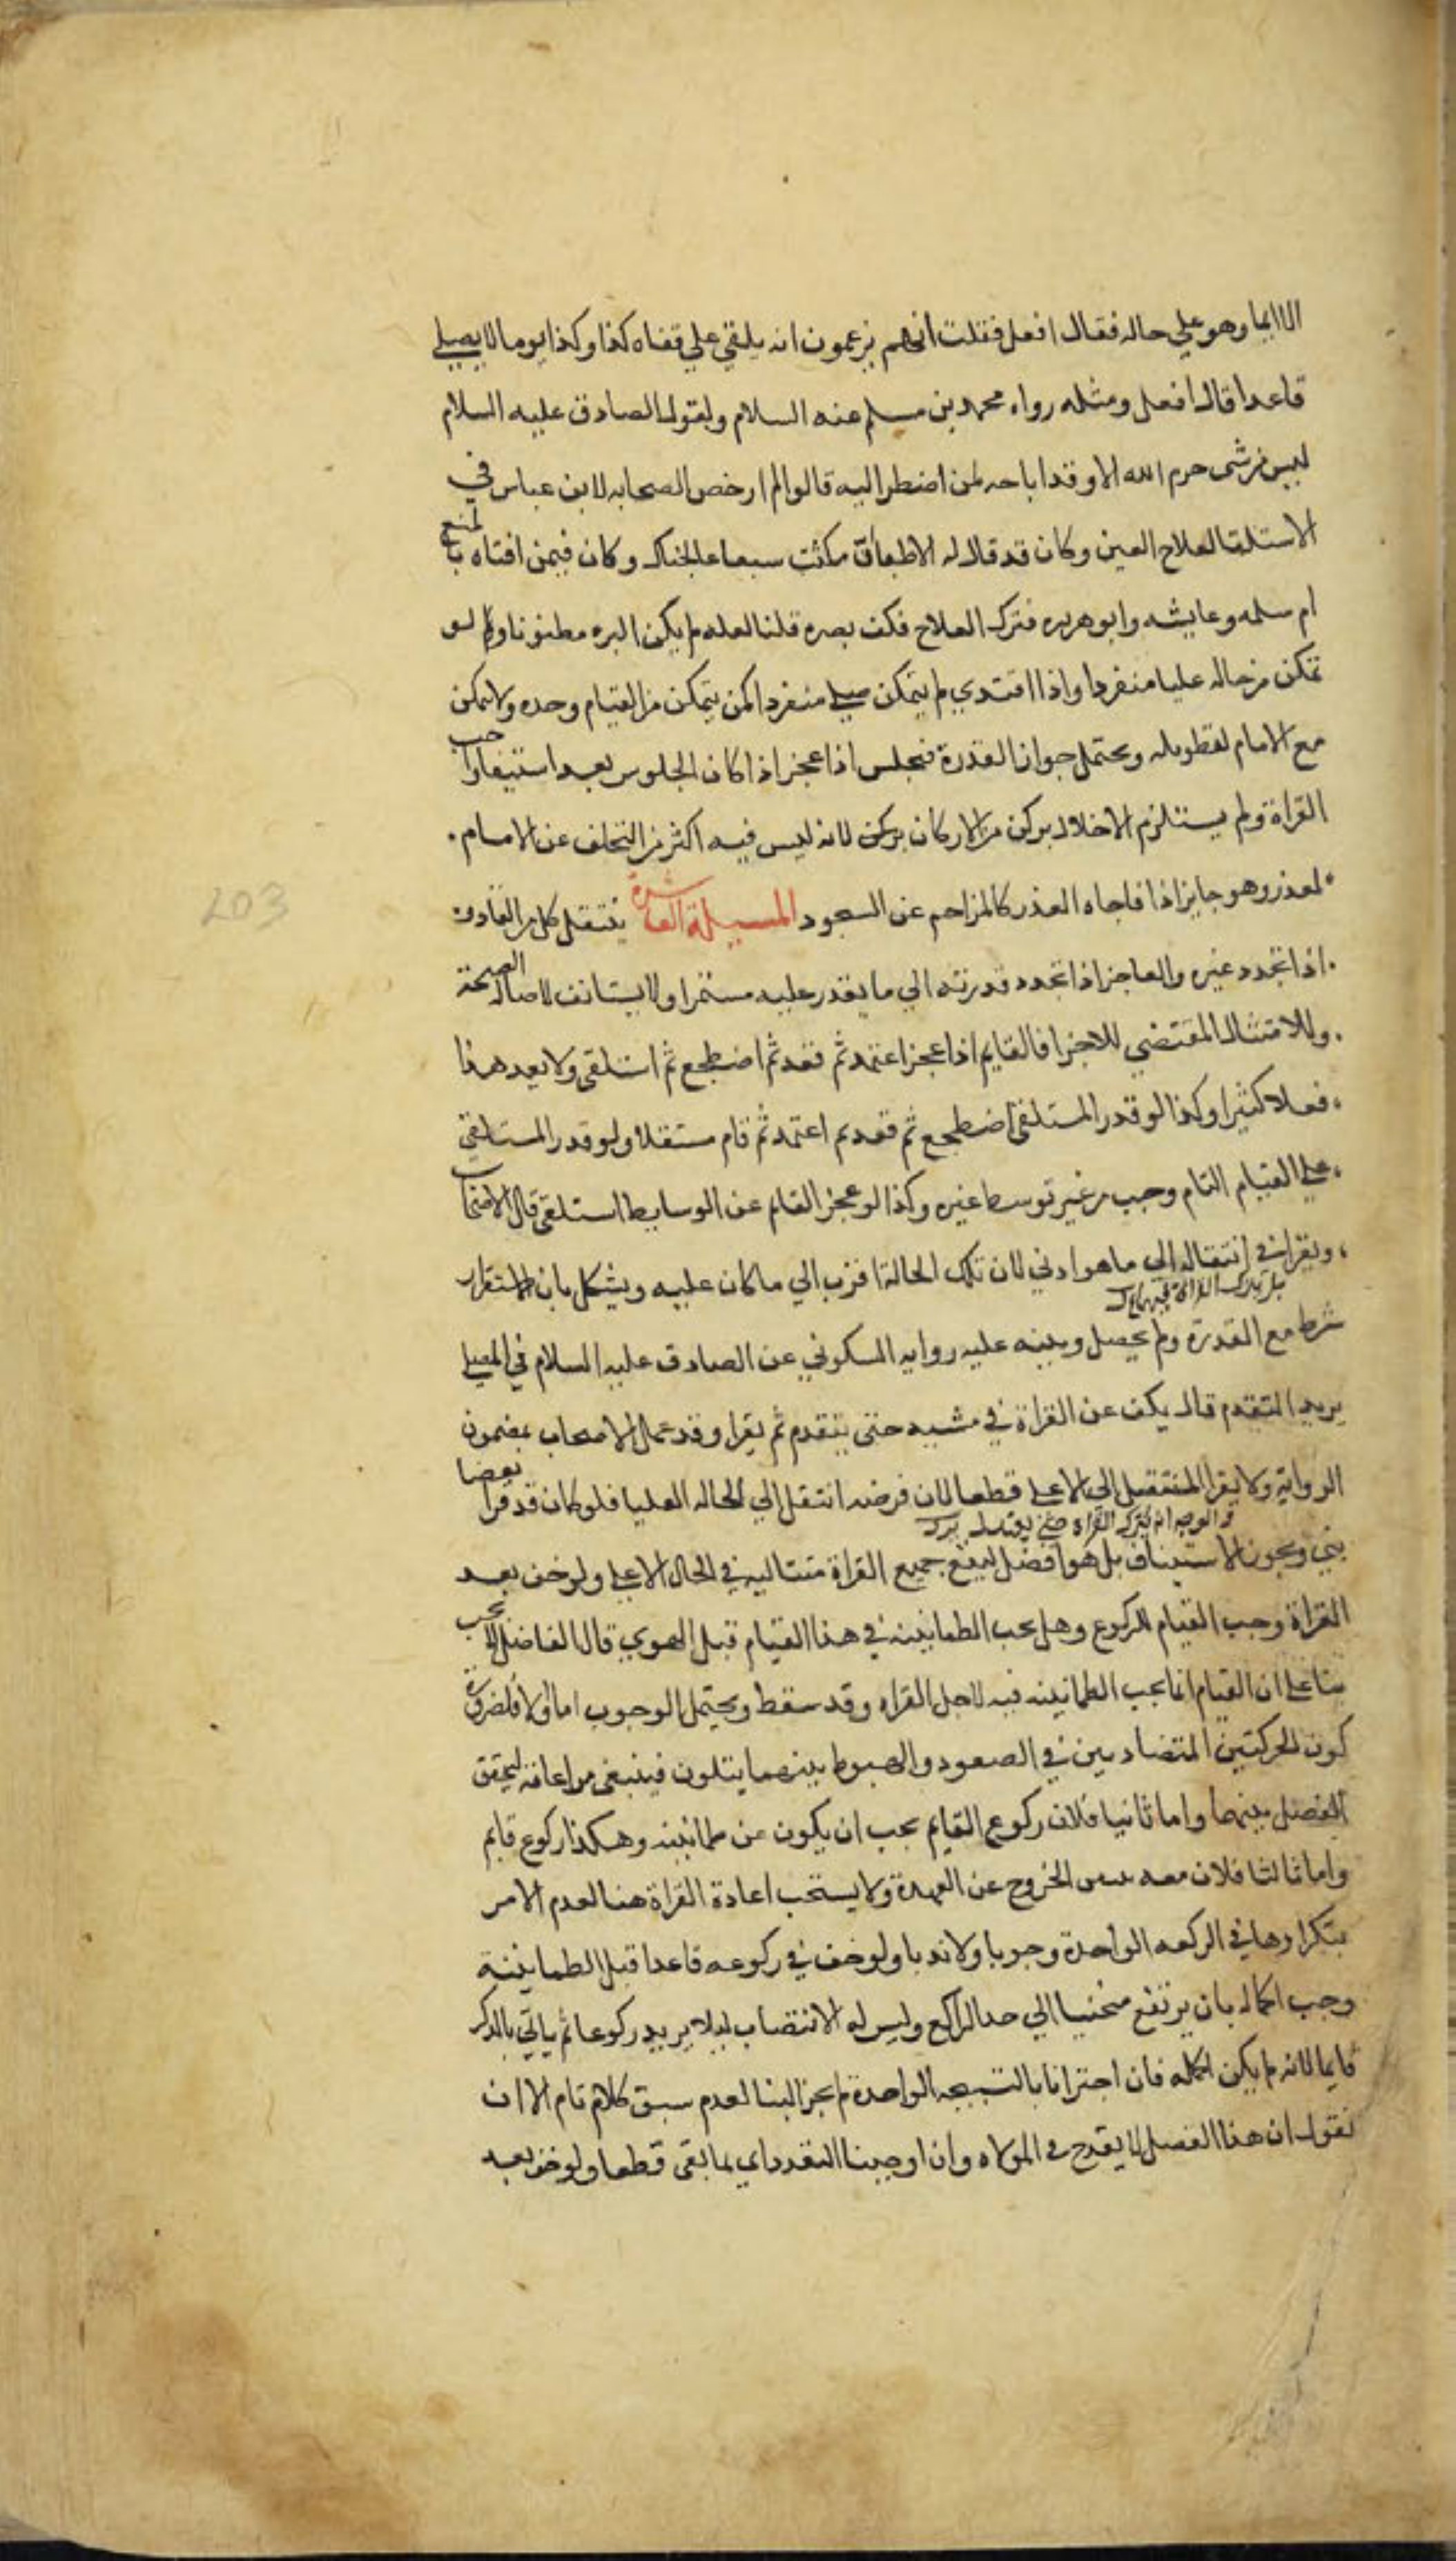 الا ايما وهو علي حاله فقال افعل فقلت انهم يزعمون انه يلقي علي قفاه كذا وكذا يوما لا يصلي
قاعدا قال افعل ومثله رواه محمد بن مسلم عنه السلام ولقول الصادق عليه السلام
ليس من شي حرم الله الا وقد اباحه لمن اضطر اليه قالوا لم ارخص الصحابه لابن عباس في
الاستلقا لعلاج العين وكان قد قال له الاطبا ان مكثت سبعا عالجناك وكان فيمن افتاه بالمنع
ام سلمه وعايشه وابو هريره فترك العلاج فكف بصره قلنا لعله لم يكن البره مظنونا ولو
تمكن من حاله عليا منفردا واذا اقتدي لم يتمكن صلي منفردا كمن يتمكن من القيام وحده ولا يمكن
مع الامام لتطويله ويحتمل جواز القدرة فيجلس اذا عجز اذا كان الجلوس بعد استيفا واجب
القراة ولم يستلزم الاخلال بركن من الاركان بركن لانه ليس فيه اكثر من التخلف عن الامام
لعذر وهو جايز اذا فاجاه العذر كالمزاحم عن السجود المسيلة العاشرة ينتقل كل من القادر
اذا تجدد عنره والعاجز اذا تجدد قدرته الي ما يقدر عليه مستمرا ولا يستانف لاصالة الصحة
وللامتثال المقتضي للاجزا فالقايم اذا عجز اعتمد ثم قعد ثم اضطجع ثم استلقي ولا يعد هذا
فعلا كثيرا وكذا لو قدر المستلقي اضطجع ثم قعد ثم اعتمد ثم قام مستقلا ولو قدر المستلقي
علي القيام التام وجب من غير توسط غيره وكذا لو عجز القايم عن الوسايط استلقي قال الاصحاب
ويقرا في انتقاله الي ما هو ادني لان تلك الحالة اقرب الي ما كان عليه ويشكل بان الاستقرار
بل يترك القراة فيهما
شرط مع القدرة ولم يحصل وينبه عليه روايه السكوني عن الصادق عليه السلام في المصلي
يريد التقدم قال يكف عن القراة في مشيه حتي يتقدم ثم يقرا وقد عمل الاصحاب بمضمون
الرواية ولا يقرا المنتقل الي الاعلي قطعا لان فرضه انتقل الي الحاله العليا فلو كان قد قرا بعضا
والوجه ان يترك القراه حتي يعتدل
بني ويجوز الاستيناف بل هو افضل ليقع جميع القراة متتاليه في الحال الاعلي ولو خف بعد
القراة وجب القيام للركوع وهل يجب الطمانينه في هذا القيام قبل الهوي قال الفاضل لا يجب
بنا علي ان القيام انما يجب الطمانينه فيه لاجل القراه وقد سقط ويحتمل الوجوب اما اولا فلضرورة
كون الحركتين المتضادين في الصعود والهبوط بينهما يتلون فينبغي مراعاته ليتحقق
الفصل بينهما واما ثانيا فلان ركوع القايم يجب ان يكون عن طمانينه وهكذا ركوع قايم
واما ثالثا فلان معه الخروج عن العهدة ولا يستحب اعادة القراة هنا لعدم الامر
بتكرارها في الركعه الواحدة وجوبا ولا ندبا ولو خف في ركوعه قاعدا قبل الطمانينة
وجب اكماله بان يرتفع منحنيا الي حد الراكع وليس له الانتصاب ليلا يريد ركوعا ثم ياتي بالذكر
قايما لانه لم يكن اكمله فان اجتزانا بالتسبيحه الواحدة لم يجز البنا لعدم سبق كلام تام الا ان
نقول ان هذا الفصل لا يقدح في الموالاه وان اوجبنا التعدد اي لما بقي قطعا ولو خف بعد
203